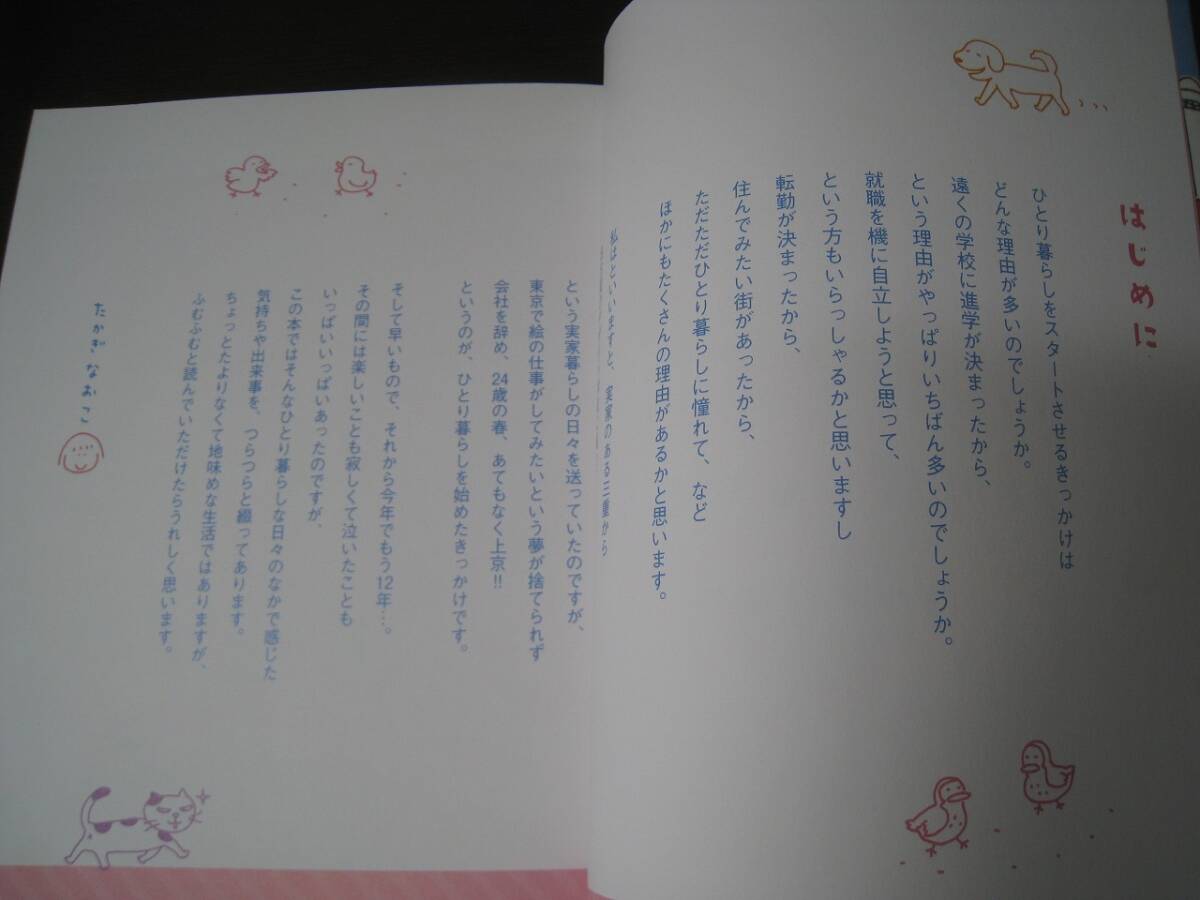 はじめに
ひとり暮らしをスタートさせるきっかけは
どんな理由が多いのでしょうか。
遠くの学校に進学が決まったから、
という理由がやっぱりいちばん多いのでしょうか。
就職を機に自立しようと思って、
という方もいらっしゃるかと思いますし
転勤が決まったから、
住んでみたい街があったから、
ただただひとり暮らしに憧れて、など
ほかにもたくさんの理由があるかと思います。
私はといいますと、実家のある三重から
という実家暮らしの日々を送っていたのですが、
東京で絵の仕事がしてみたいという夢が捨てられず
会社を辞め、24歳の春、あてもなく上京!!
というのが、ひとり暮らしを始めたきっかけです。
そして早いもので、それから今年でもう12年…。
その間には楽しいことも寂しくて泣いたことも
いっぱいいっぱいあったのですが、
この本ではそんなひとり暮らしな日々のなかで感じた
気持ちや出来事を、つらつらと綴ってあります。
ちょっとたよりなくて地味めな生活ではありますが、
ふむふむと読んでいただけたらうれしく思います。
たかぎなおこ